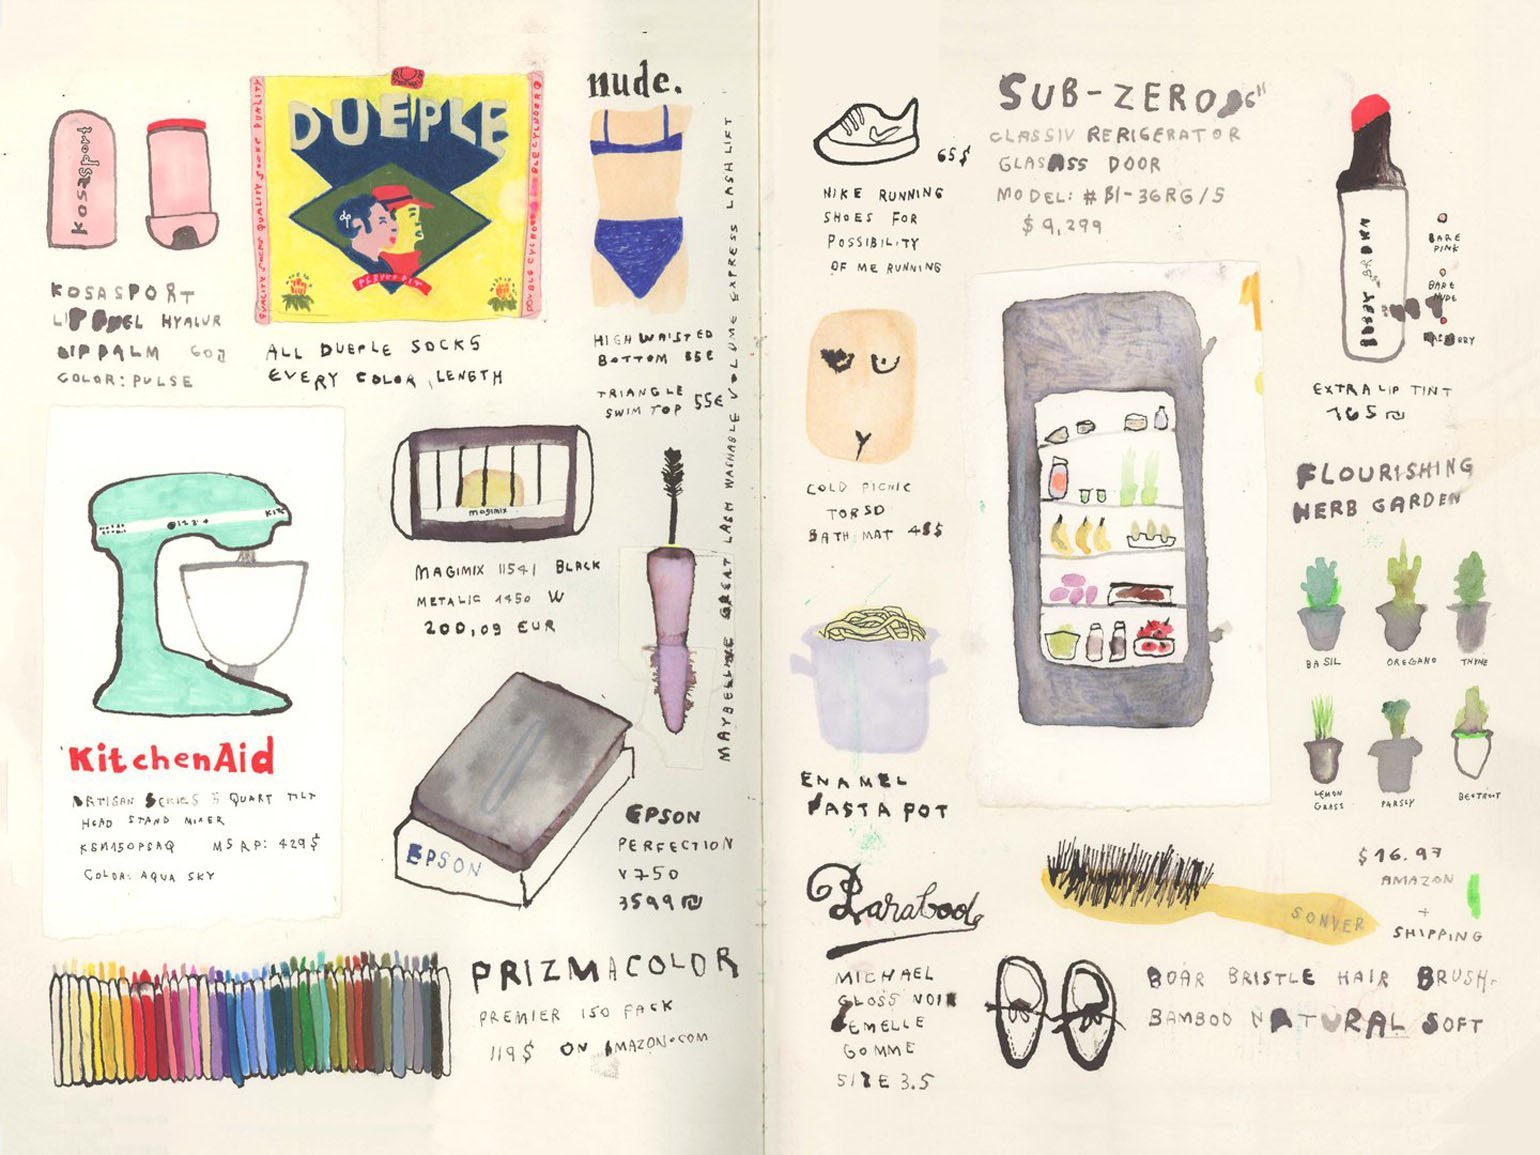 kosasport
KOSASPORT
HYALUR
COLOR: PULSE
DUEPLE
ALL DUEPLE SOCKS
EVERY COLOR, LENGTH
nude.
HIGH WAISTED
BOTTOM
TRIANGLE
SWIM TOP 55€
MAYBELLINE GREAT LASH WASHABLE VOLUME EXPRESS LASH LIFT
KitchenAid
ARTISAN SERIES 5 QUART TILT
HEAD STAND MIXER
KSM150PSAQ MSRP: 429$
COLOR: AQUA SKY
magimix
MAGIMIX 11541 BLACK
METALIC 1450 W
200,09 EUR
EPSON
EPSON
PERFECTION
V750
3599₪
PRIZMACOLOR
PREMIER 150 PACK
119$ ON AMAZON.COM
65$
NIKE RUNNING
SHOES FOR
POSSIBILITY
OF ME RUNNING
COLD PICNIC
TORSO
BATH MAT 48$
ENAMEL
PASTA POT
SUB-ZERO 36"
CLASSIV RERIGERATOR
GLASASS DOOR
MODEL: #BI-36RG/S
$9,299
BARE
PINK
BARE
NUDE
EXTRA LIP TINT
165₪
FLOURISHING
HERB GARDEN
BASIL
OREGANO
THYME
LEMON
GRASS
PARSLY
BEETROOT
Paraboot
MICHAEL
GLOSS NOIR
GEMELLE
GOMME
SIZE 3.5
SONVER
$16.97
AMAZON
+
SHIPPING
BOAR BRISTLE HAIR BRUSH-
BAMBOO NATURAL SOFT